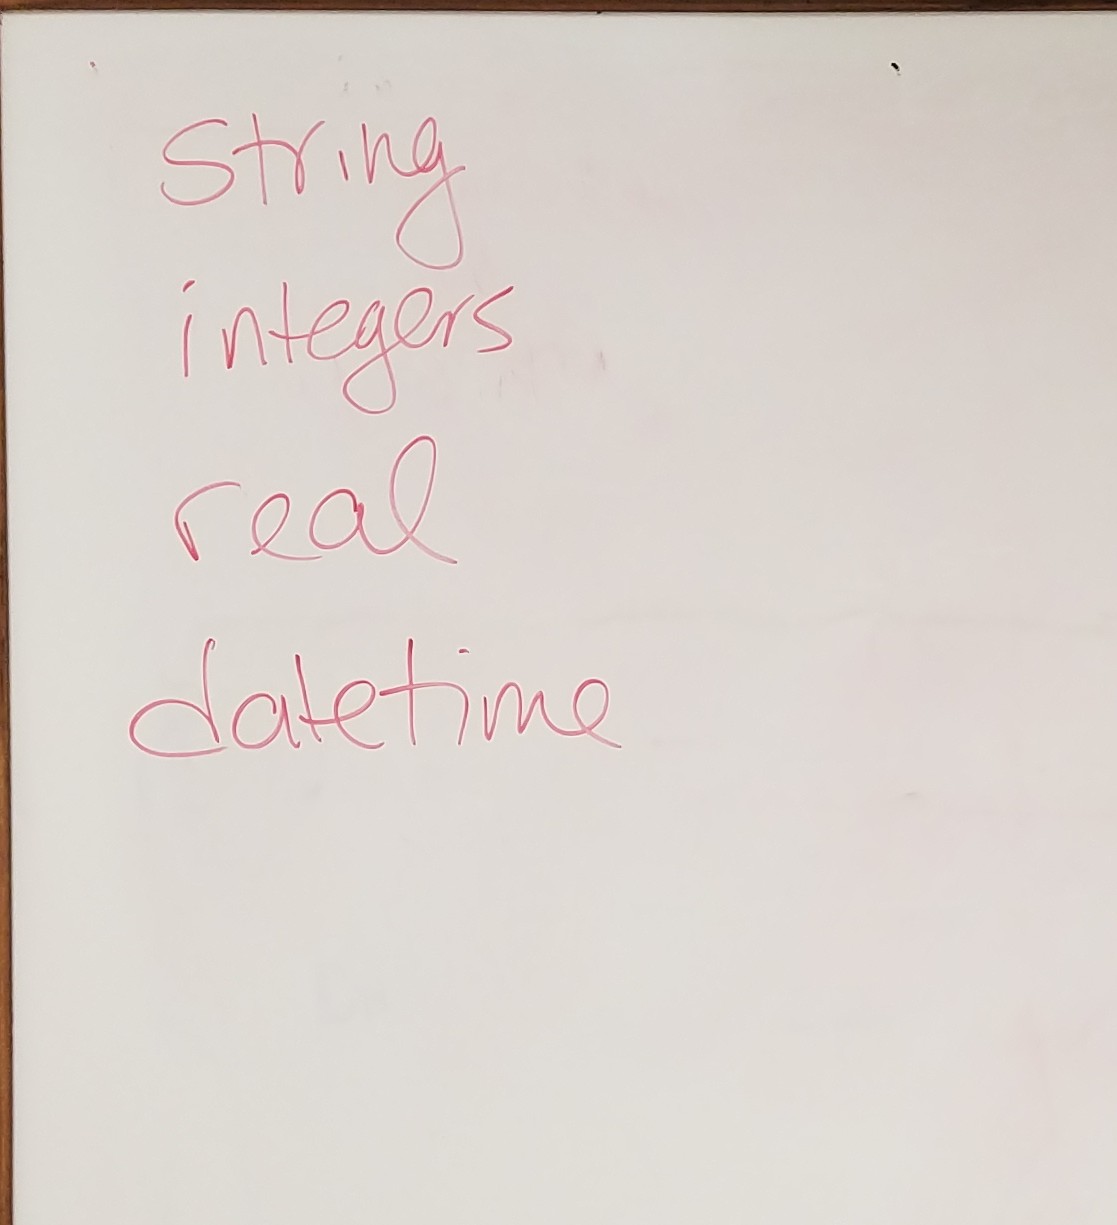 string
integers
real
datetime